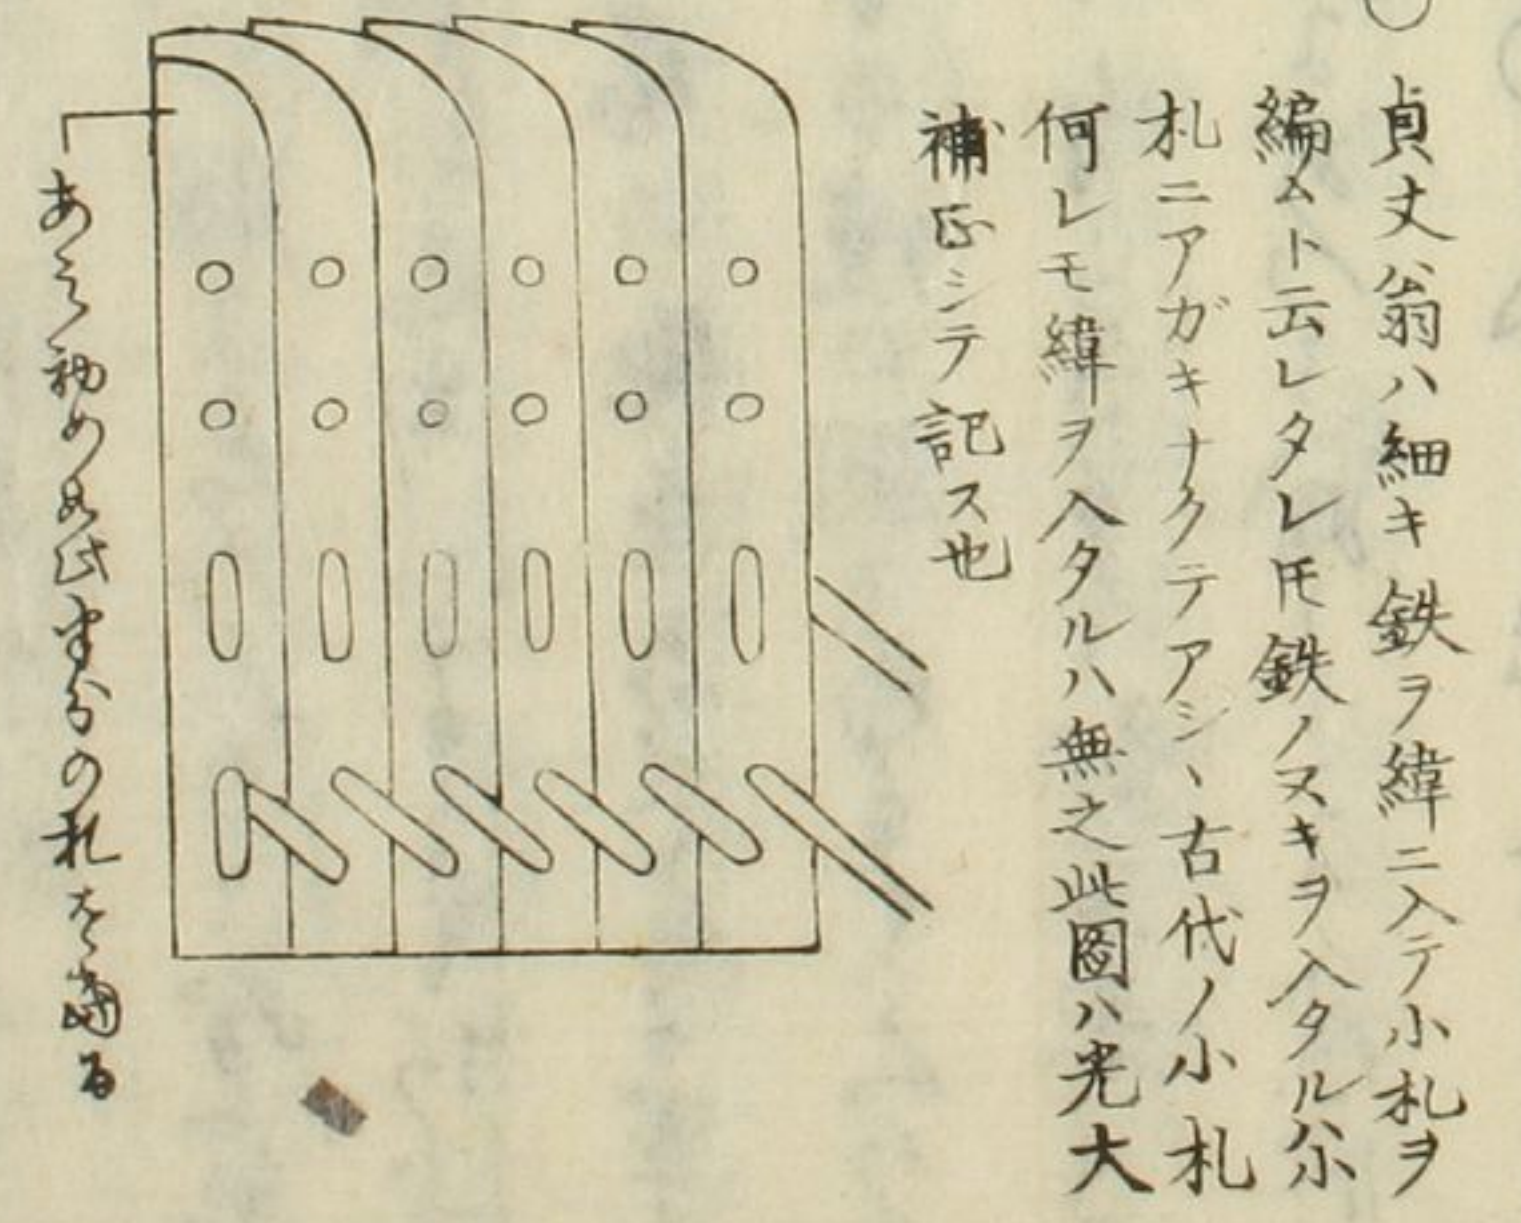 ○貞丈翁ハ細キ鉄ヲ緯ニ入テ小札ヲ
編ムト云レタレ𪜈鉄ノヌキヲ入タルハ小
札ニアガキナクテアシヽ古代ノ小札
何レモ緯ヲ入タルハ無之此圖ハ光大
補正シテ記ス也
あミ初めハ此半分の札を